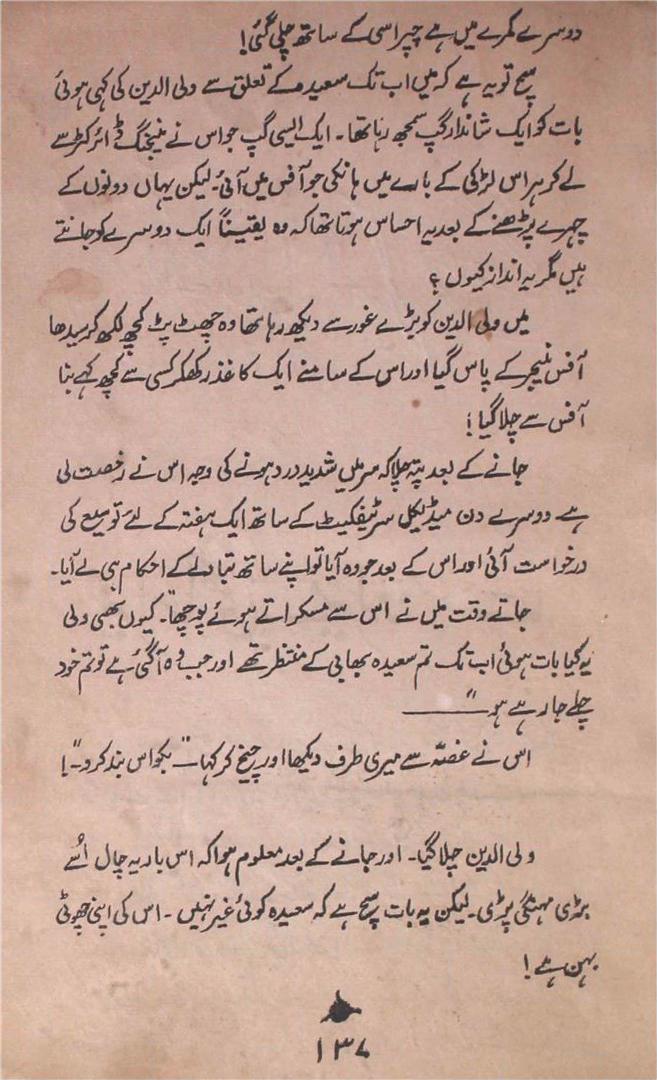 دوسرے کمرے میں ہے چپراسی کے ساتھ چلی گئی!
سچ تو یہ ہے کہ میں اب تک سعیدہ کے تعلق سے ولی الدین کی کہی ہوئی
بات کو ایک شاندار گپ سمجھ رہا تھا۔ ایک ایسی گپ جو اس نے منیجنگ ڈائرکٹر سے
لے کر ہر اس لڑکی کے بارے میں ہانکی جو آفس میں آئی۔ لیکن یہاں دونوں کے
چہرے پڑھنے کے بعد یہ احساس ہوتا تھا کہ وہ یقیناً ایک دوسرے کو جانتے
ہیں مگر یہ انداز کیوں ؟
میں ولی الدین کو بڑے غور سے دیکھ رہا تھا وہ جھٹ پٹ کچھ لکھ کر سیدھا
آفس منیجر کے پاس گیا اور اس کے سامنے ایک کاغذ رکھ کر کسی سے کچھ کہے بنا
آفس سے چلا گیا!
جانے کے بعد پتہ چلا کہ سر میں شدید درد ہونے کی وجہ اس نے رخصت لی
ہے دوسرے دن میڈیکل سرٹیفکیٹ کے ساتھ ایک ہفتہ کے لئے توسیع کی
درخواست آئی اور اس کے بعد جو وہ آیا تو اپنے ساتھ تبادلے کے احکام ہی لے آیا۔
جاتے وقت میں نے اس سے مسکراتے ہوئے پوچھا"۔ کیوں بھی ولی
یہ کیا بات ہوئی اب تک تم سعیدہ بھابی کے منتظر تھے اور جب وہ آگئی ہے تو تم خود
چلے جا رہے ہو"ــــــــ
اس نے غصّہ سے میری طرف دیکھا اور چیخ کر کہا۔" بکواس بند کرو۔"!
ولی الدین چلا گیا۔ اور جانے کے بعد معلوم ہوا کہ اس بار یہ چال اُسے
بڑی مہنگی پڑی۔ لیکن یہ بات سچ ہے کہ سعیدہ کوئی غیر نہیں۔ اس کی اپنی چھوٹی
بہن ہے!
۱۳۷